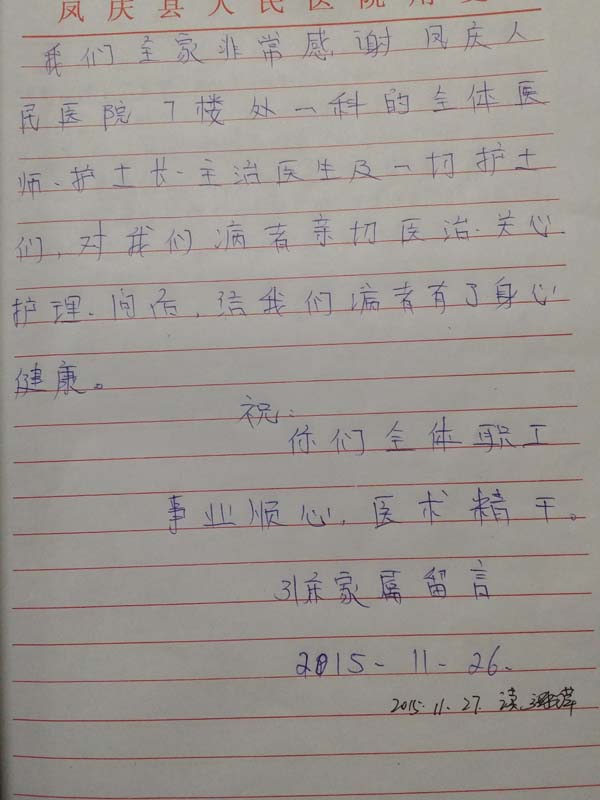 凤庆县人民医院用笺
我们全家非常感谢凤庆人
民医院7楼处一科的全体医
师、护士长、主治医生及一切护士
们，对我们病者亲切医治、关心
护理、问后，给我们病者有了身心
健康。
祝：
你们全体职工
事业顺心，医术精干。
31床家属留言
2015-11-26
2015.11.27.读